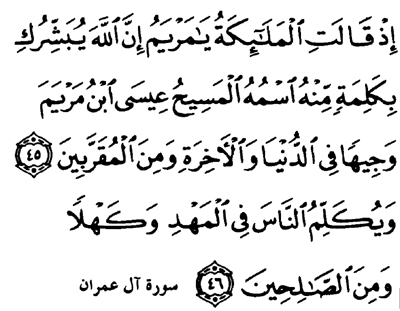 إِذْ قَالَتِ ٱلْمَلَٰٓئِكَةُ يَٰمَرْيَمُ إِنَّ ٱللَّهَ يُبَشِّرُكِ
بِكَلِمَةٍ مِّنْهُ ٱسْمُهُ ٱلْمَسِيحُ عِيسَى ٱبْنُ مَرْيَمَ
وَجِيهًا فِى ٱلدُّنْيَا وَٱلْأَخِرَةِ وَمِنَ ٱلْمُقَرَّبِينَ ٤٥
وَيُكَلِّمُ ٱلنَّاسَ فِى ٱلْمَهْدِ وَكَهْلًا
وَمِنَ ٱلصَّٰلِحِينَ ٤٦ سورة آل عمران